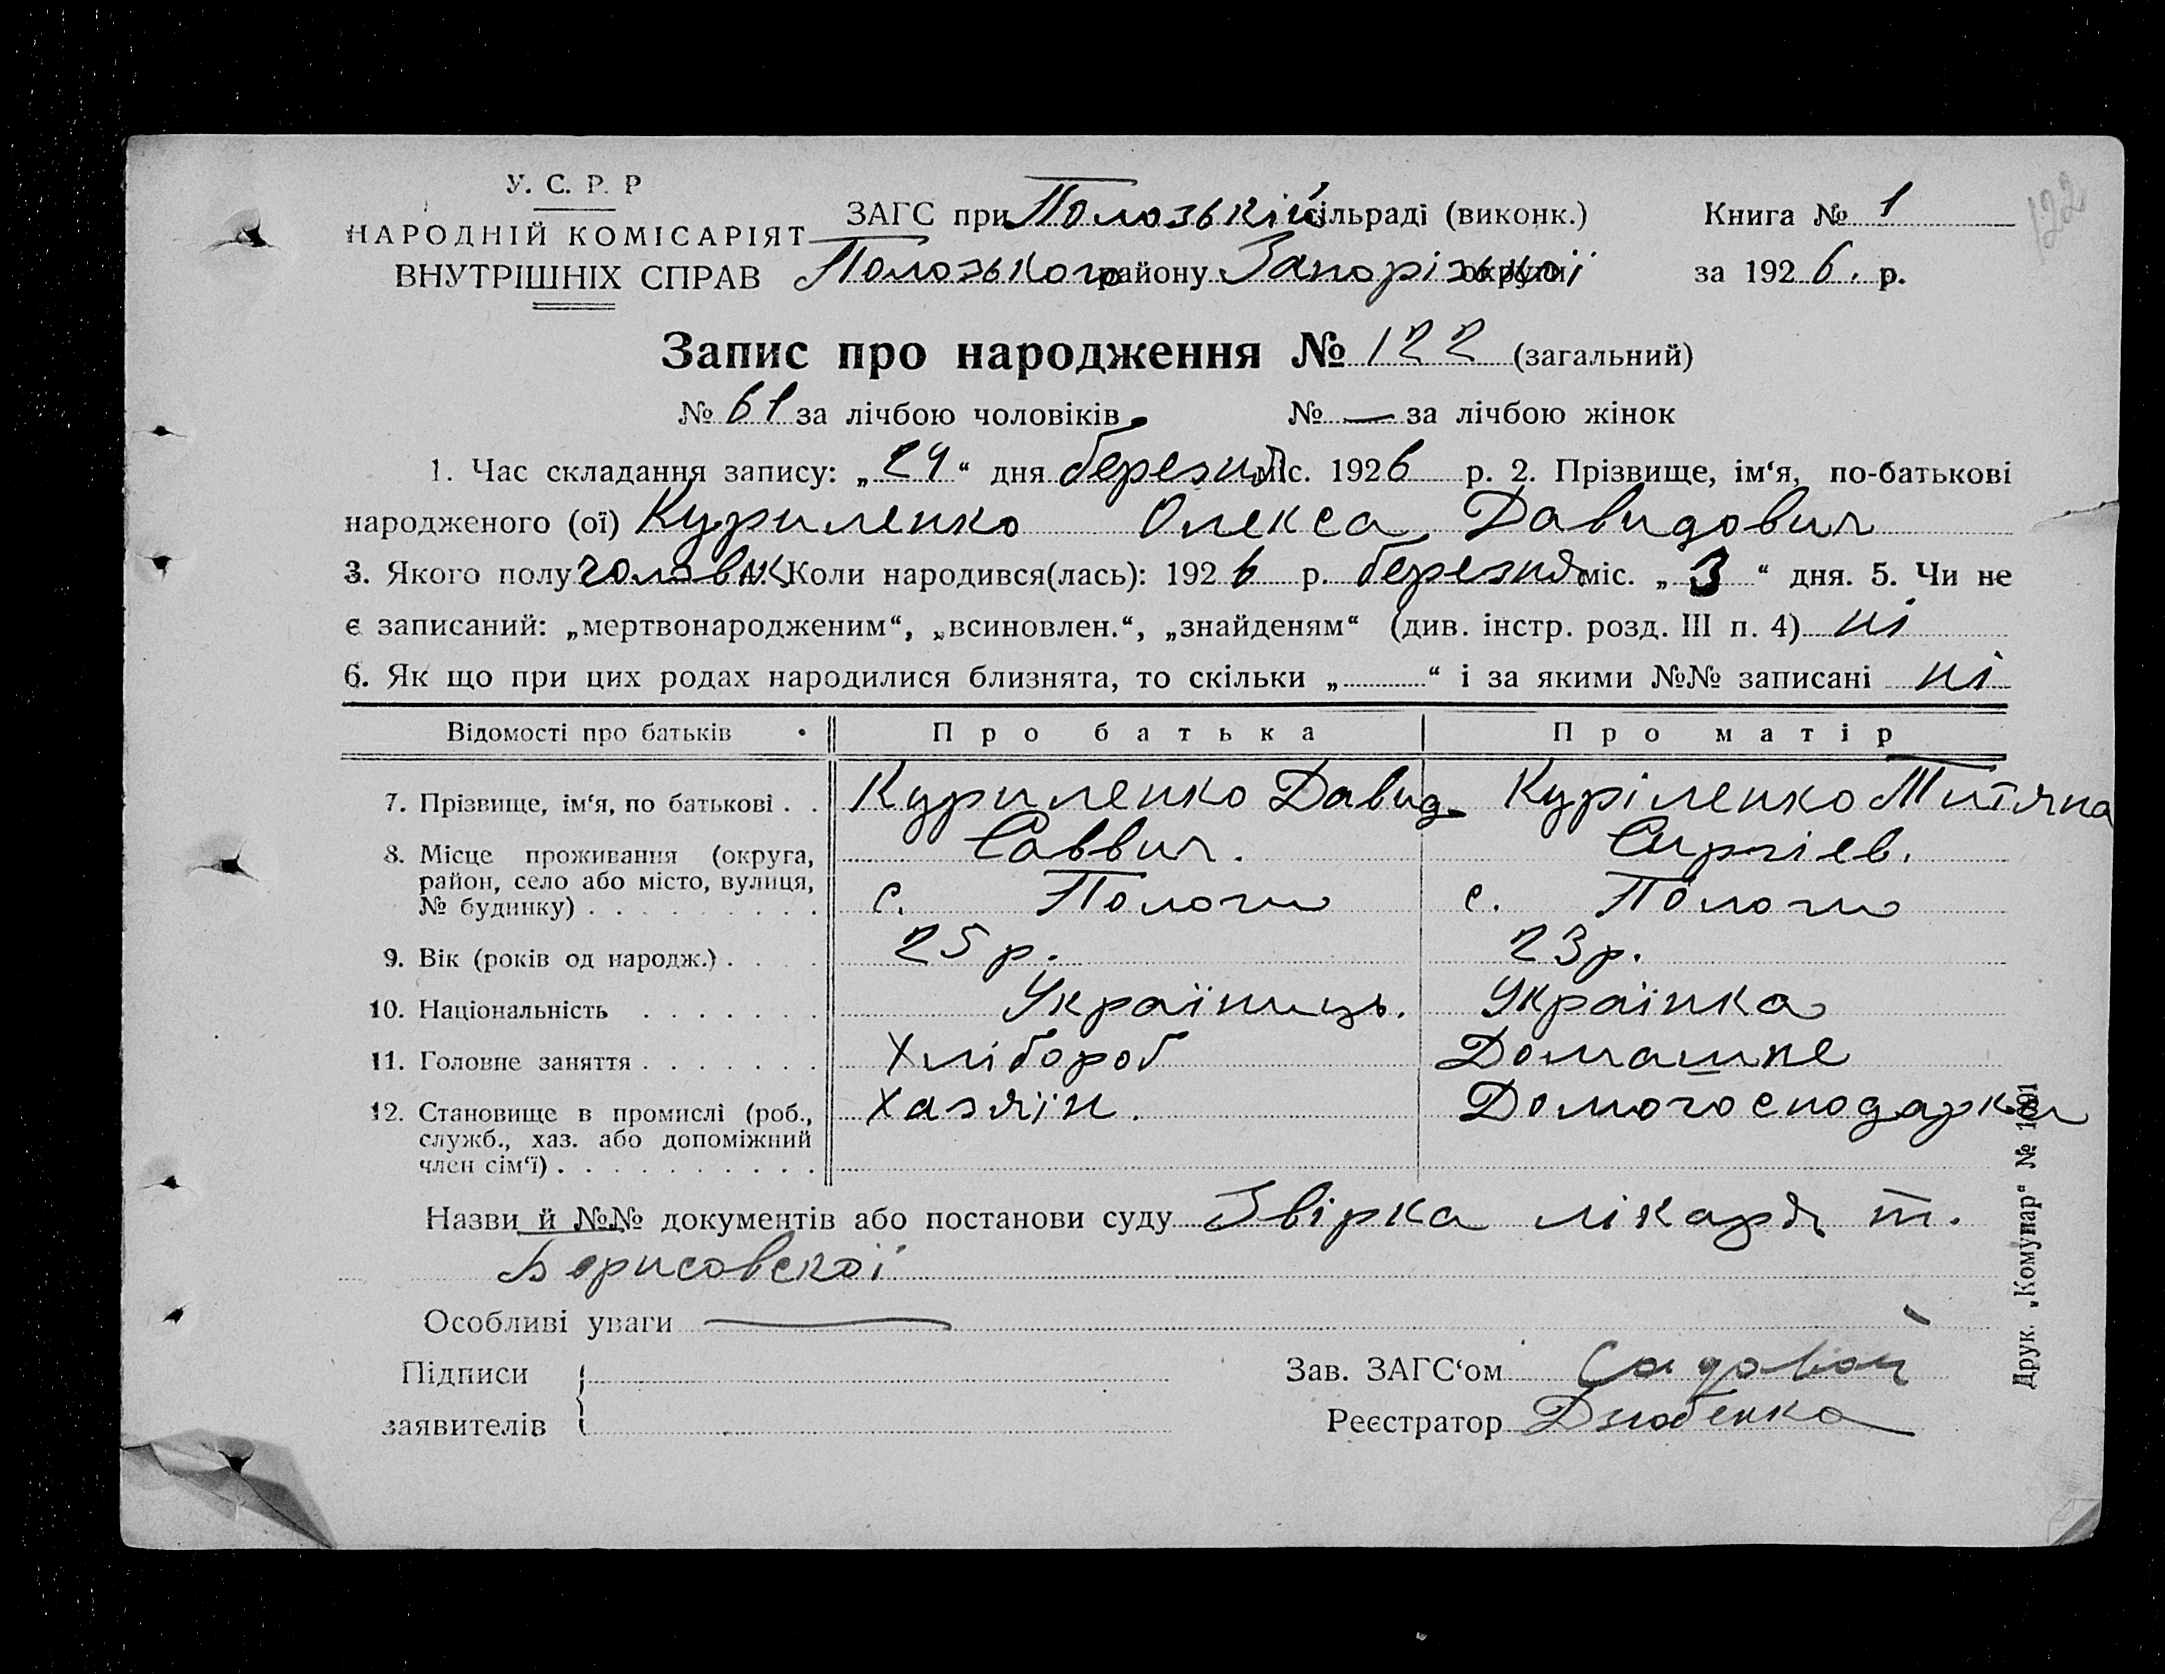 122
У. С. Р. Р
НАРОДНІЙ КОМІСАРІЯТ
ВНУТРІШНІХ СПРАВ
ЗАГС при Пологзькій сільраді (виконк.)
Книга № 1
Полозького району Запорізької округи
за 1926. р.
Запис про народження № 122 (загальний)
№ 61 за лічбою чоловіків № — за лічбою жінок
1. Час складання запису: „24“ дня березня міс. 1926 р. 2. Прізвище, ім‘я, по-батькові
народженого (ої) Куриленко Олекса Давидович
3. Якого полу чоловік. Коли народився(лась): 1926 р. березня міс. „3“ дня. 5. Чи не
є записаний: „мертвонародженим“, „всиновлен.“, „знайденям“ (див. інстр. розд. III п. 4) ні
6. Як що при цих родах народилися близнята, то скільки „ “ і за якими №№ записані ні
Відомості про батьків Про батька Про матір
7. Прізвище, ім‘я, по батькові . . Куриленко Давид Куріленко Титяна
Саввич. Сиргіев.
8. Місце проживання (округа,
район, село або місто, вулиця,
№ будинку) . . . . . . . . . с. Пологи с. Пологи
9. Вік (років од народж.) . . . . 25 р. 23 р.
10. Національність . . . . . . . Україниць. Українка
11. Головне заняття . . . . . . . Хлібороб Домашне
12. Становище в промислі (роб., Хазяїн. Домогосподарка
служб., хаз. або допоміжний
член сім‘ї) . . . . . . . . . .
Назви й №№ документів або постанови суду Звірка лікаря т.
Борисовскої
Особливі уваги —
Підписи
заявителів
Зав. ЗАГС‘ом Садовой
Реєстратор Дзюбенко
Друк. „Комунар“ № 1001